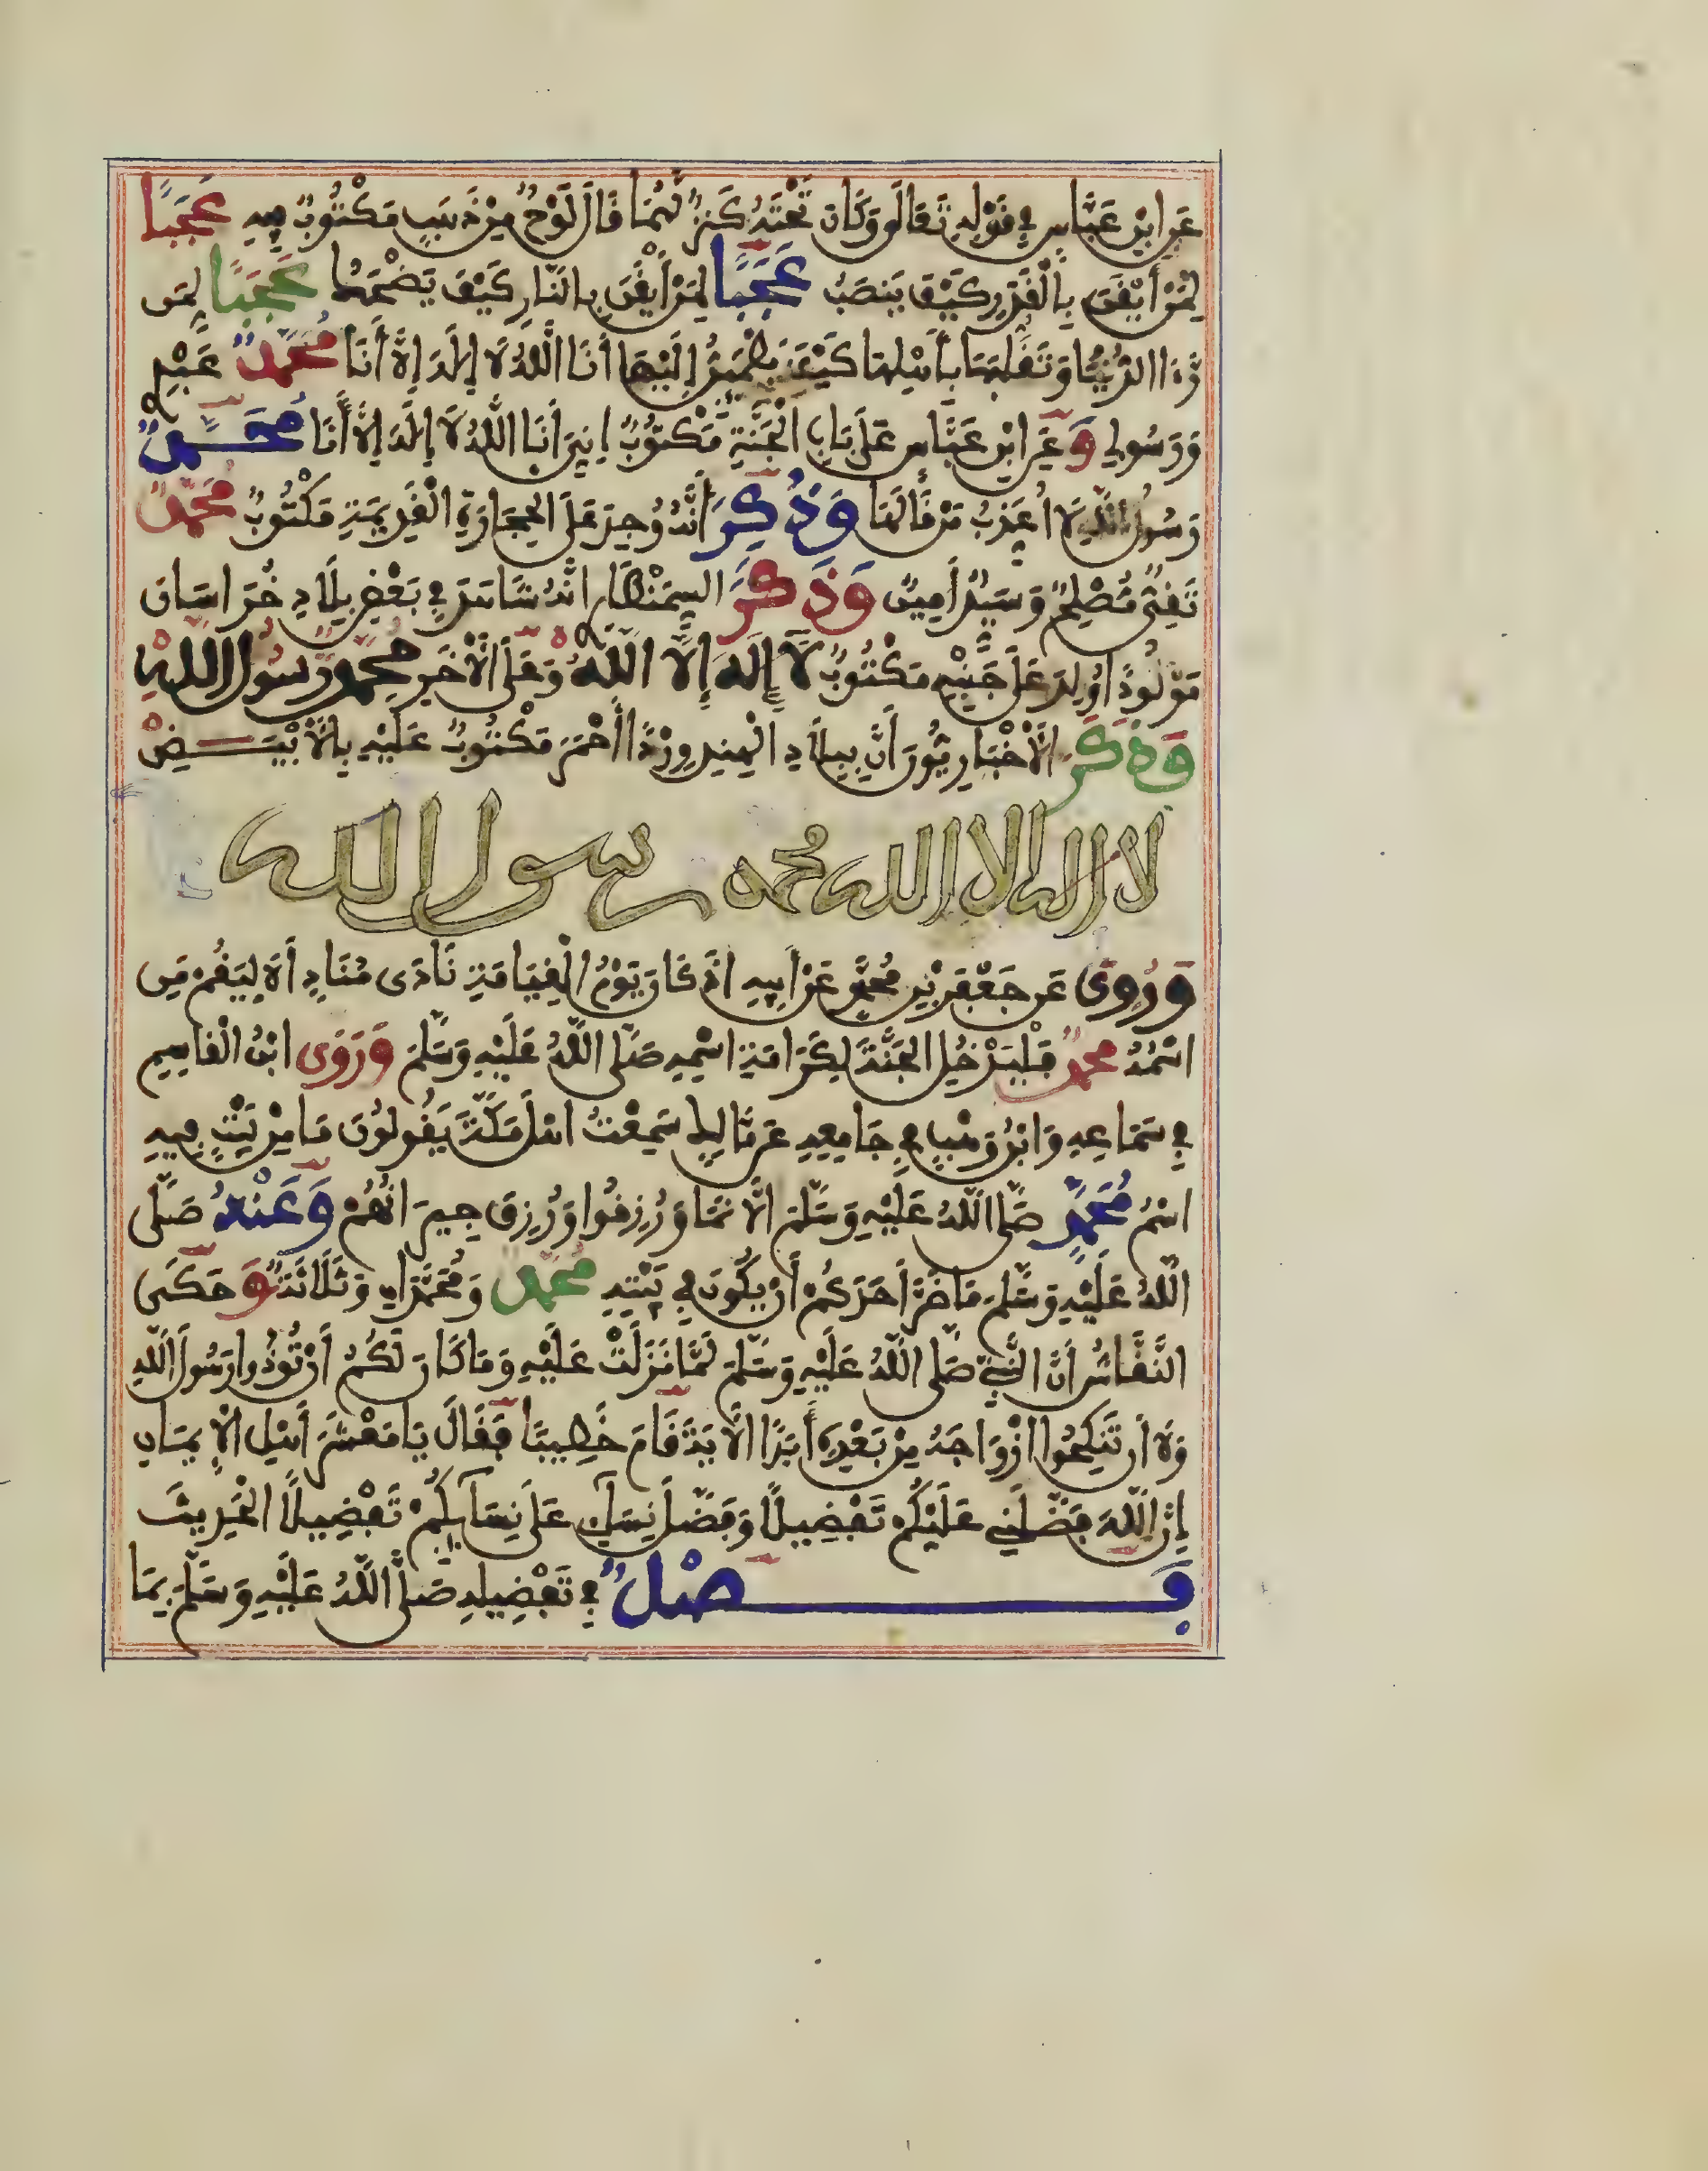 عَنِ ابْنِ عَبَّاسٍ فِي قَوْلِهِ تَعَالَى وَكَانَ تَحْتَهُ كَنْزٌ لَهُمَا قَالَ لَوْحٌ مِنْ ذَهَبٍ مَكْتُوبٌ فِيهِ عَجَبًا
لِمَنْ أَيْقَنَ بِالْقَدَرِ كَيْفَ يَنْصَبُ عَجَبًا لِمَنْ أَيْقَنَ بِالنَّارِ كَيْفَ يَضْحَكُ عَجَبًا لِمَن
رَءَا الدُّنْيَا وَتَقَلُّبَهَا بِأَهْلِهَا كَيْفَ يَطْمَئِنُّ إِلَيْهَا أَنَا اللَّهُ لَا إِلَهَ إِلَّا أَنَا مُحَمَّدٌ عَبْدِي
وَرَسُولِي وَعَنِ ابْنِ عَبَّاسٍ عَلَى بَابِ الْجَنَّةِ مَكْتُوبٌ إِنِّي أَنَا اللَّهُ لَا إِلَهَ إِلَّا أَنَا مُحَمَّدٌ
رَسُولُ اللَّهِ لَا أُعَذِّبُ مَنْ قَالَهَا وَذُكِرَ أَنَّهُ وُجِدَ عَلَى الْحِجَارَةِ الْقَدِيمَةِ مَكْتُوبٌ مُحَمَّدٌ
تَقِيٌّ مُصْلِحٌ وَسَيِّدٌ أَمِينٌ وَذَكَرَ السِّمِنْطَارِ أَنَّهُ شَاهَدَ فِي بَعْضِ بِلَادِ خُرَاسَانَ
مَوْلُودًا وُلِدَ عَلَى جَنْبِهِ مَكْتُوبٌ لَا إِلَهَ إِلَّا اللَّهُ وَعَلَى الْآخَرِ مُحَمَّدٌ رَسُولُ اللَّهِ
وَذَكَرَ الْأَخْبَارِيُّونَ أَنَّ بِبِلَادِ الْهِنْدِ وَرْدًا أَحْمَرَ مَكْتُوبٌ عَلَيْهِ بِالْأَبْيَضِ
لا اله الا الله محمد رسول الله
وَرُوِيَ عَنْ جَعْفَرِ بْنِ مُحَمَّدٍ عَنْ أَبِيهِ إِذَا كَانَ يَوْمُ الْقِيَامَةِ نَادَى مُنَادٍ أَلَا لِيَقُمْ مَنِ
اسْمُهُ مُحَمَّدٌ فَلْيَدْخُلِ الْجَنَّةَ لِكَرَامَةِ اسْمِهِ صَلَّى اللَّهُ عَلَيْهِ وَسَلَّمَ وَرَوَى ابْنُ الْقَاسِمِ
فِي سَمَاعِهِ وَابْنُ وَهْبٍ فِي جَامِعِهِ عَنْ مَالِكٍ سَمِعْتُ أَهْلَ مَكَّةَ يَقُولُونَ مَا مِنْ بَيْتٍ فِيهِ
اسْمُ مُحَمَّدٍ صَلَّى اللَّهُ عَلَيْهِ وَسَلَّمَ إِلَّا نَمَا وَرُزِقُوا وَرُزِقَ جِيرَانُهُمْ وَعَنْهُ صَلَّى
اللَّهُ عَلَيْهِ وَسَلَّمَ مَا ضَرَّ أَحَدَكُمْ أَنْ يَكُونَ فِي بَيْتِهِ مُحَمَّدٌ وَمُحَمَّدَانِ وَثَلَاثَةٌ وَحَكَى
النَّقَّاشُ أَنَّ النَّبِيَّ صَلَّى اللَّهُ عَلَيْهِ وَسَلَّمَ لَمَّا نَزَلَتْ عَلَيْهِ وَمَا كَانَ لَكُمْ أَنْ تُؤْذُوا رَسُولَ اللَّهِ
وَلَا أَنْ تَنْكِحُوا أَزْوَاجَهُ مِنْ بَعْدِهِ أَبَدًا الْآيَةَ قَامَ خَطِيبًا فَقَالَ يَا مَعْشَرَ أَهْلِ الْإِيمَانِ
إِنَّ اللَّهَ فَضَّلَنِي عَلَيْكُمْ تَفْضِيلًا وَفَضَّلَ نِسَائِي عَلَى نِسَائِكُمْ تَفْضِيلًا الْحَدِيثَ
فَصْلٌ فِي تَفْضِيلِهِ صَلَّى اللَّهُ عَلَيْهِ وَسَلَّمَ بِمَا